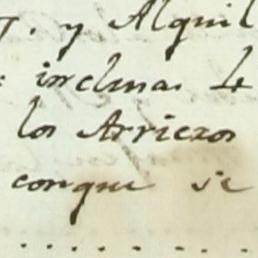 y Alquil
inclina. le
los Arrieros
conque se
. . . . . . . . . . .